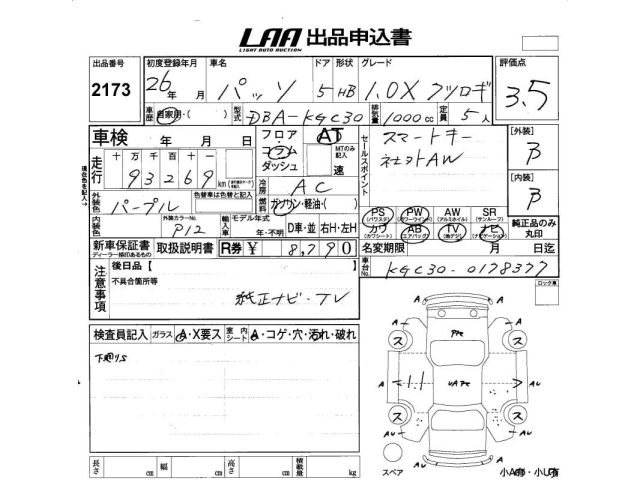 LAA 出品申込書
LIGHT AUTO AUCTION
出品番号
2173
初度登録年月 車名 ドア 形状 グレード
26年 月 パッソ 5 HB 1.0X クツロギ
評価点
3.5
車歴 自家用・( ) 型式 DBA-KGC30 排気量 1000cc 定員 5人
車検 年 月 日
フロア・コラム ダッシュ
AT
MTのみ記入
速
セールスポイント
スマートキー
社外AW
[外装]
B
[内装]
B
走行
十万千百十
93269km
冷房 AC
燃料 ガソリン・軽油・( )
外装色 パープル
色替車は色替と記入
内装色
外装カラーNo.
P12
輸入車
モデル年式
年・不明
D車・並 右H・左H
PS (パワステ) PW (パワーウインド) AW (アルミホイル) SR (サンルーフ)
カワ (カワシート) AB (エアバッグ) TV (地デジ) ナビ (ナビゲーション)
純正品のみ丸印
新車保証書 取扱説明書 R券 ¥ 8,790
ディーラー捺印あるもの
名変期限 月 日迄
車台No. KGC30-0178377
ロック車
注意事項
後日品 [
不具合箇所等
純正ナビ・TV
検査員記入 ガラス A・X要ス 室内シート A・コゲ・穴・汚れ・破れ
下廻りS
A
ス ス
A AU
1.1
ス ス
AU AU
A
スペア
長さ cm 幅 cm 高さ cm 積載量 kg